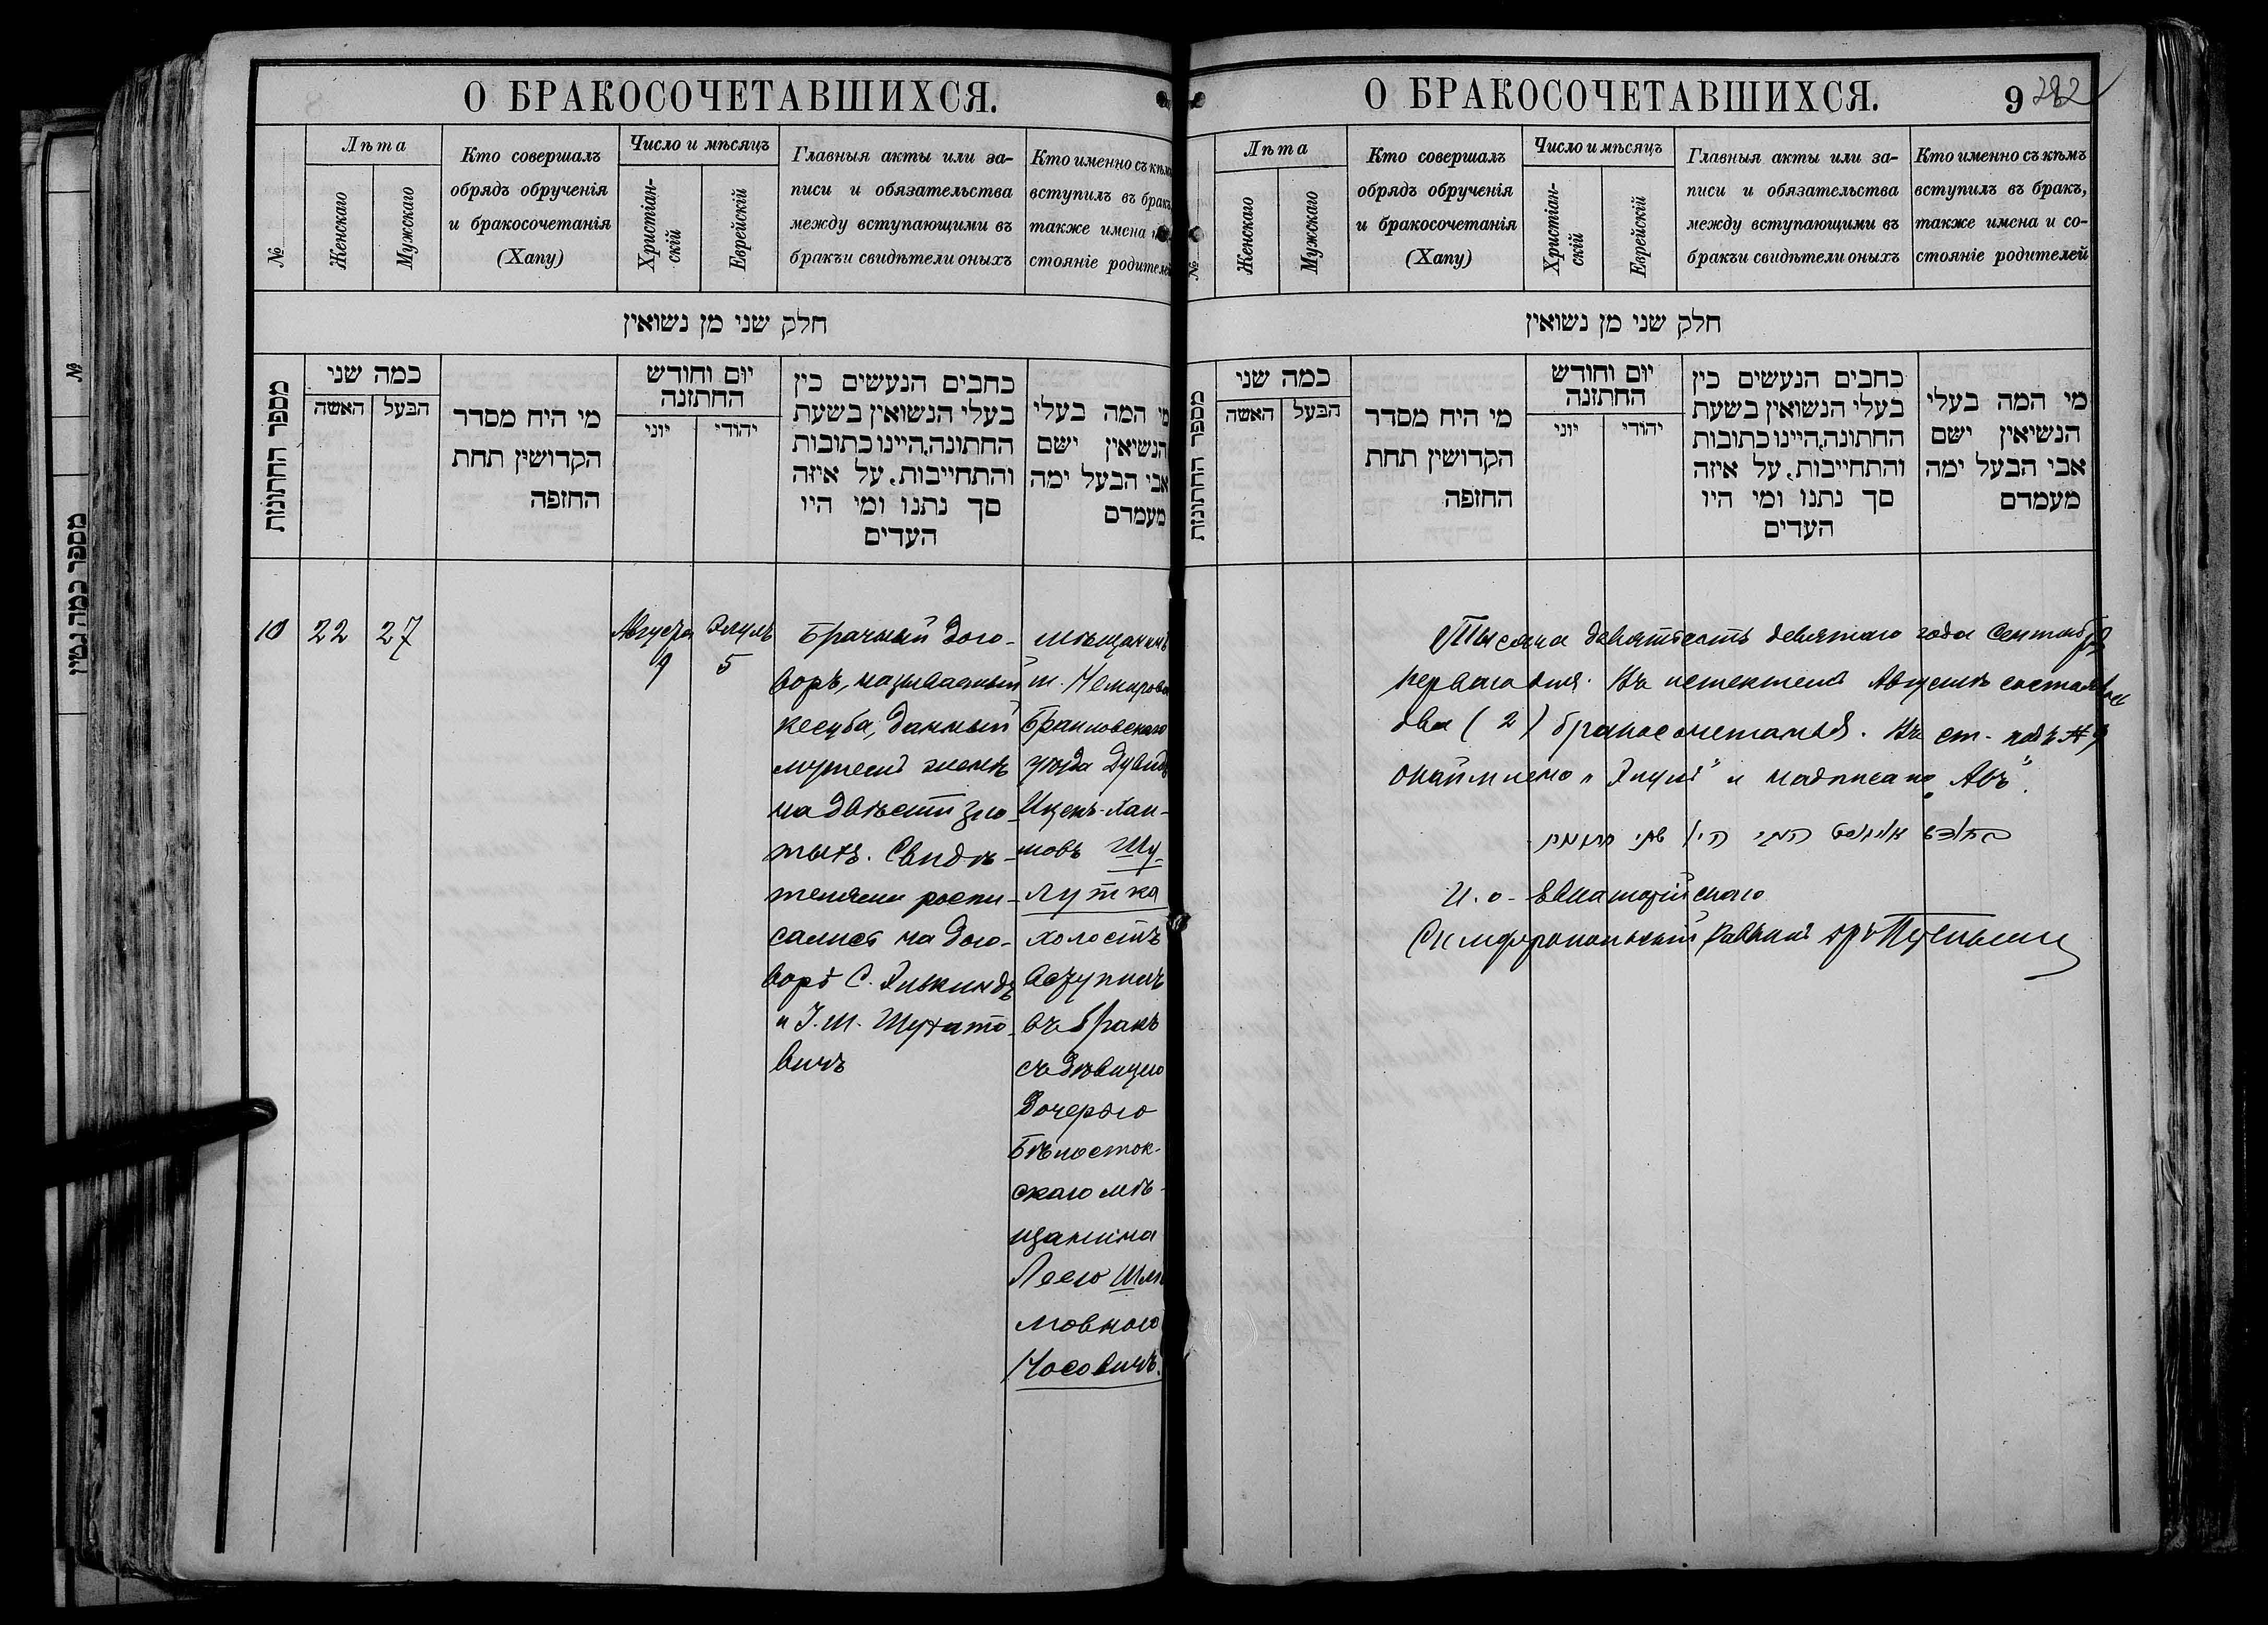 О БРАКОСОЧЕТАВШИХСЯ.
№
Лѣта
Женскаго
Мужскаго
Кто совершалъ
обрядъ обрученія
и бракосочетанія
(Хапу)
Число и мѣсяцъ
Христіан-
скій
Еврейскій
Главныя акты или за-
писи и обязательства
между вступающими въ
бракъи свидѣтели оныхъ
Кто именно съ
вступилъ въ бракъ
также имена
стояніе родителей
חלק שני מן נשואין
מספר החתונות
כמה שני
האשה
הבעל
מי היח מסדר
הקדושין תחת
החופה
יום וחודש
החתונה
יוני
יהודי
כחבים הנעשים כין
בעלי הנשואין בשעת
החתונה,היינו כתובות
והתחייבות, על איזה
סך נתנו ומי היו
העדים
מי המה בעלי
הנשיאין ישם
אבי הבעל ימה
מעמדם
10
22
27
Августа
9
Элулъ
5
Брачный дого-
воръ, называемый
кесуба, данный
мужемъ женѣ
на двѣсти зло-
тыхъ. Свидѣ-
телями роспи-
сались на дого-
ворѣ С. Элькиндъ
и І. Ш. Шухато-
вичъ
мѣщанинъ
м. Немирова
Браиловскаго
уѣзда Дувидъ
Ицекъ-Хаи-
мовъ Шу-
лутка
холостъ
вступилъ
въ бракъ
съ дѣвицею
дочерью
Бѣлосток-
скаго мѣ-
щанина
Леею Шлі
мовною
Носовичъ.
О БРАКОСОЧЕТАВШИХСЯ.
9
282
№
Лѣта
Женскаго
Мужскаго
Кто совершалъ
обрядъ обрученія
и бракосочетанія
(Хапу)
Число и мѣсяцъ
Христіан-
скій
Еврейскій
Главныя акты или за-
писи и обязательства
между вступающими въ
бракъи свидѣтели оныхъ
Кто именно съ кѣмъ
вступилъ въ бракъ,
также имена и со-
стояніе родителей
חלק שני מן נשואין
מספר החתונות
כמה שני
האשה
הבעל
מי היח מסדר
הקדושין תחת
החופה
יום וחודש
החתונה
יוני
יהודי
כחבים הנעשים כין
בעלי הנשואין בשעת
החתונה,היינו כתובות
והתחייבות, על איזה
סך נתנו ומי היו
העדים
מי המה בעלי
הנשיאין ישם
אבי הבעל ימה
מעמדם
Тысяча девятьсотъ девятаго года Сентября
перваго дня. Въ истекшемъ Августѣ состоялось
два (2) бракосочетанія. Въ ст. подъ № 9
окаймлено "Элулъ" и надписано "Авъ".
בחודש אוגוסט היו שתי חתונות
И. о. Евпаторійскаго
Симферопольскій Раввинъ